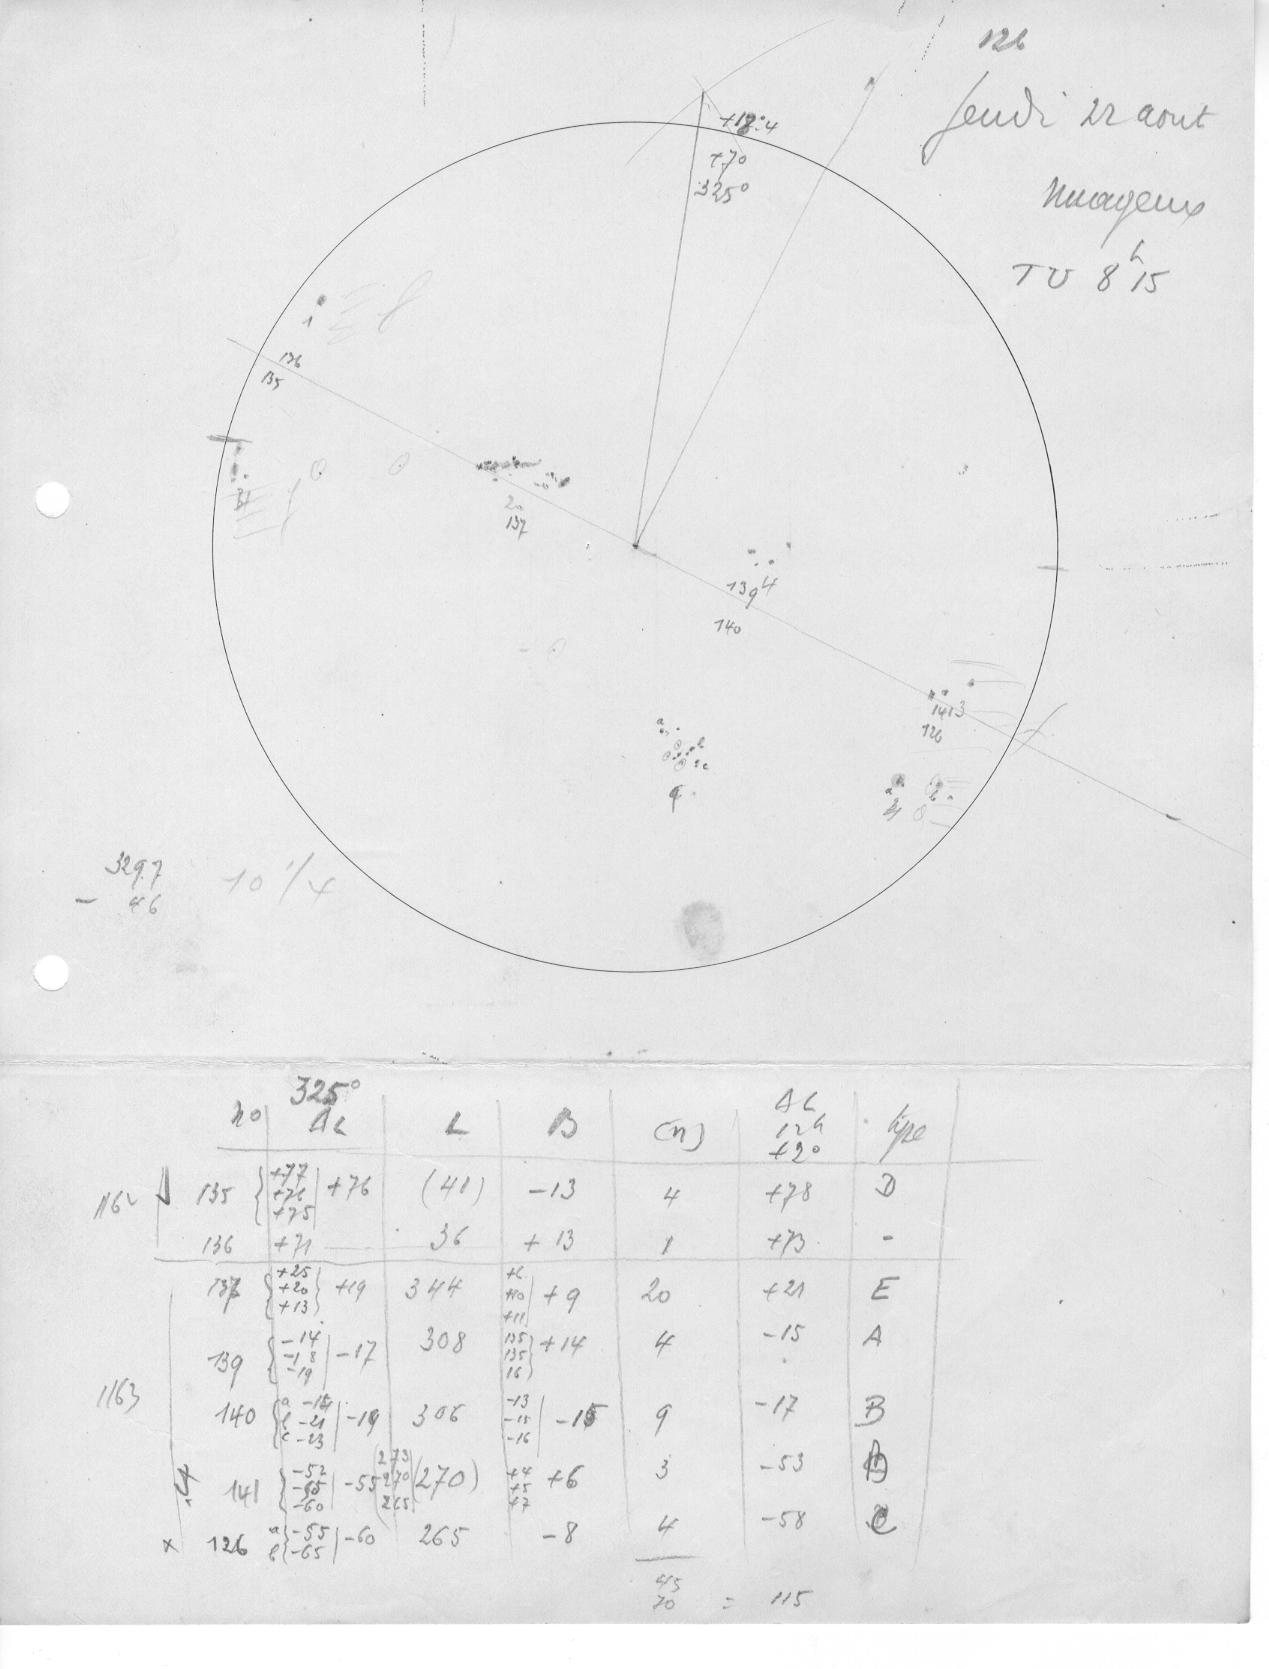 126
Jeudi 22 aout
nuageux
TU 8h15
+18°.4
+70
325°
1
136
135
20
137
139 4
140
141 3
126
a
b
c
9
a
b
4
329.7
- 46
10 1/4
325°
no AL L B (n) AL 12h +2° type
1162 135 { +77 +76 +75 | +76 (41) -13 4 +78 D
136 +71 36 +13 1 +73 -
137 { +25 +20 +13 } +19 344 +10 +11 | +9 20 +21 E
139 { -14 -18 -19 | -17 308 135 135 16 } +14 4 -15 A
1163 140 { a b -21 c -23 | -19 306 -13 -15 -16 | -15 9 -17 B
141 { -52 -60 | -55 (273 270 265) (270) +4 +5 +7 +6 3 -53
x 126 a b { -55 -65 | -60 265 -8 4 -58 C
45
70 = 115